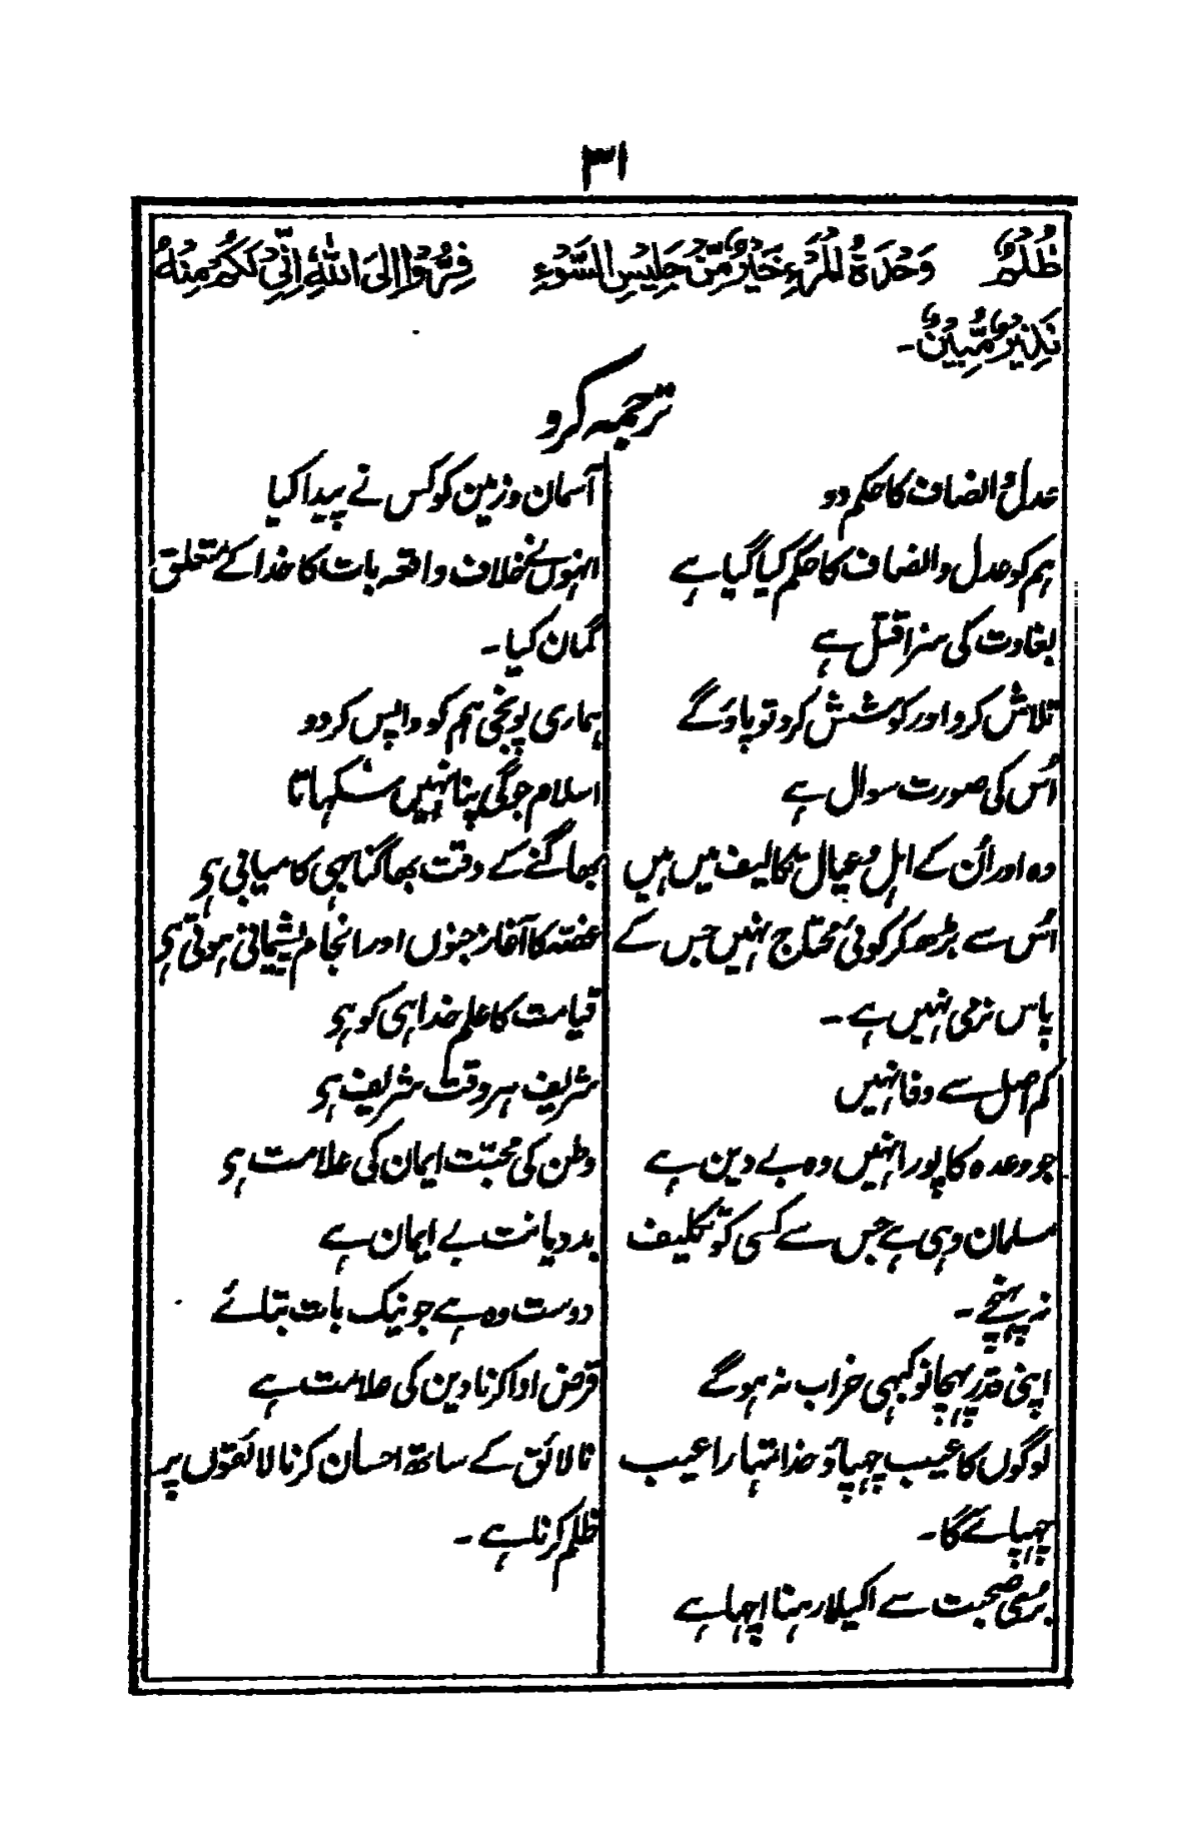 ۳۱
ظُلْمٌ وَحْدَةُ الْمَرْءِ خَيْرٌ مِّنْ جَلِيْسِ السَّوْءِ فِرُّوْا اِلَى اللّٰهِ اِنِّىْ لَكُمْ مِنْهُ
نَذِيْرٌ مُّبِيْنٌ۔
ترجمہ کرو
عدل و انصاف کا حکم دو
ہم کو عدل و انصاف کا حکم کیا گیا ہے
بغاوت کی سزا قتل ہے
تلاش کرو اور کوشش کرو تو پاؤگے
اُس کی صورت سوال ہے
وہ اور اُن کے اہل و عیال تکالیف میں ہیں
اُس سے بڑھکر کوئی محتاج نہیں جس کے
پاس نرمی نہیں ہے ۔
کم اصل سے وفا نہیں
جو وعدہ کا پورا نہیں وہ بے دین ہے
مسلمان وہی ہے جس سے کسی کو تکلیف
نہ پہنچے ۔
اپنی قدر پہچانو کبھی خراب نہ ہوگے
لوگوں کا عیب چھپاؤ خدا تمہارا عیب
چھپائے گا ۔
بُری صحبت سے اکیلا رہنا اچھا ہے
آسمان و زمین کو کس نے پیدا کیا
انہوں نے خلاف واقعہ بات کا خدا کے متعلق
گمان کیا ۔
ہماری پونجی ہم کو واپس کردو
اسلام جوگی بننا نہیں سکھاتا
بھاگنے کے وقت بھاگنا ہی کامیابی ہی
غصّہ کا آغاز جنوں اور انجام پشیمانی ہوتی ہی
قیامت کا علم خدا ہی کو ہی
شریف ہر وقت شریف ہی
وطن کی محبّت ایمان کی علامت ہی
بد دیانت بے ایمان ہے
دوست وہ ہے جو نیک بات بتائے
قرض ادا کرنا دین کی علامت ہے
نالائق کے ساتھ احسان کرنا لائقوں پر
ظلم کرنا ہے ۔